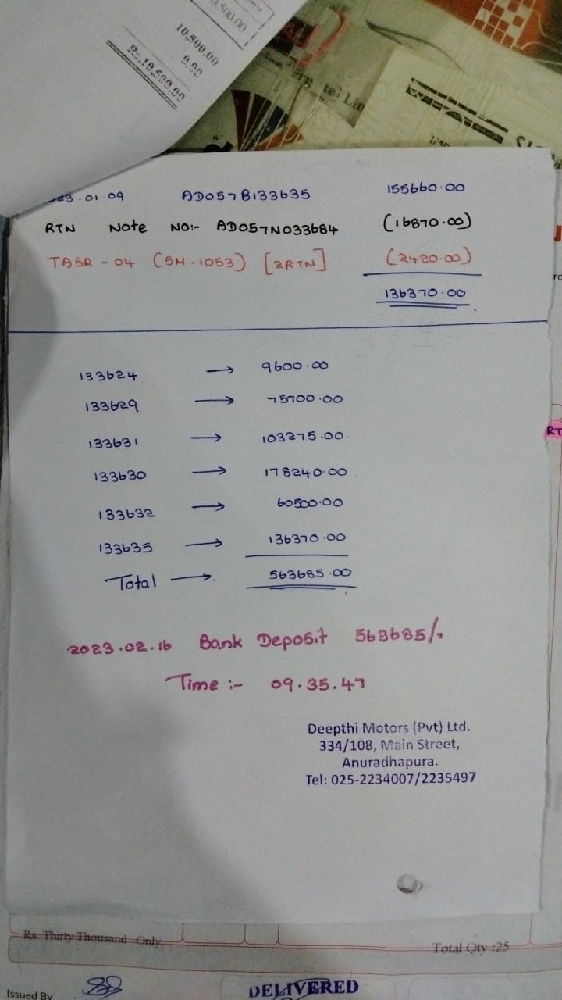 0,500.00
10,500.00
0.00
Rs.10,500.00
23.01.09 AD057B133635 155660.00
RTN Note No:- AD057N033684 (16870.00)
TASR-04 (SM-1053) [2RTN] (2420.00)
136370.00
133624 → 9600.00
133629 → 75700.00
133631 → 103275.00
133630 → 178240.00
133632 → 60500.00
133635 → 136370.00
Total → 563685.00
2023.02.16 Bank Deposit 563685/.
Time :- 09.35.47
Deepthi Motors (Pvt) Ltd.
334/108, Main Street,
Anuradhapura.
Tel: 025-2234007/2235497
Rs. Thirty Thousand Only
Total Qty :25
Issued By
DELIVERED
RT